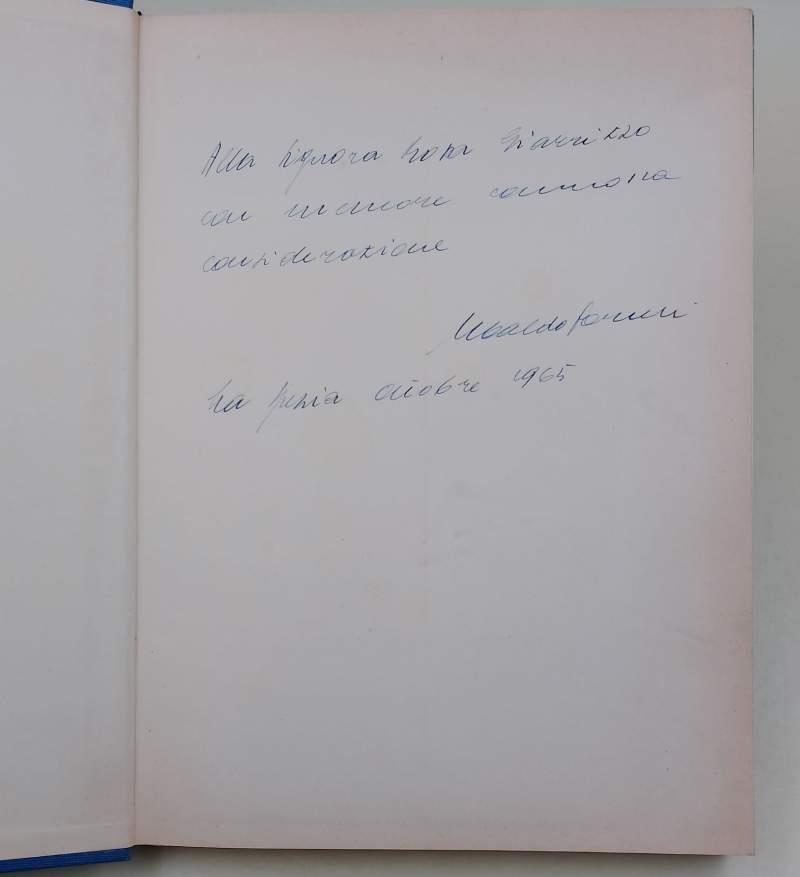 Alla Signora Rosa Giarrizzo
con memore commossa
considerazione
Ubaldo Formen
La Spezia ottobre 1965